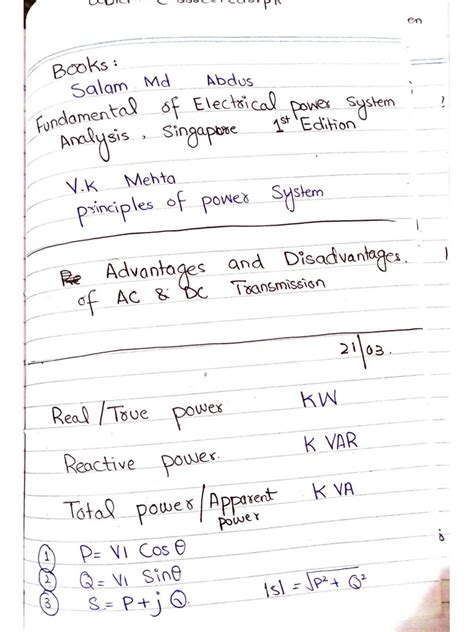 en
Books:
Salam Md Abdus
Fundamental of Electrical power System
Analysis, Singapore 1st Edition
V.K Mehta
principles of power System
Advantages and Disadvantages.
of AC & DC Transmission
21/03.
Real/True power KW
Reactive power. K VAR
Total power/Apparent power K VA
① P= VI Cosθ
② Q= VI Sinθ
③ S= P+jQ |s| = √P²+Q²